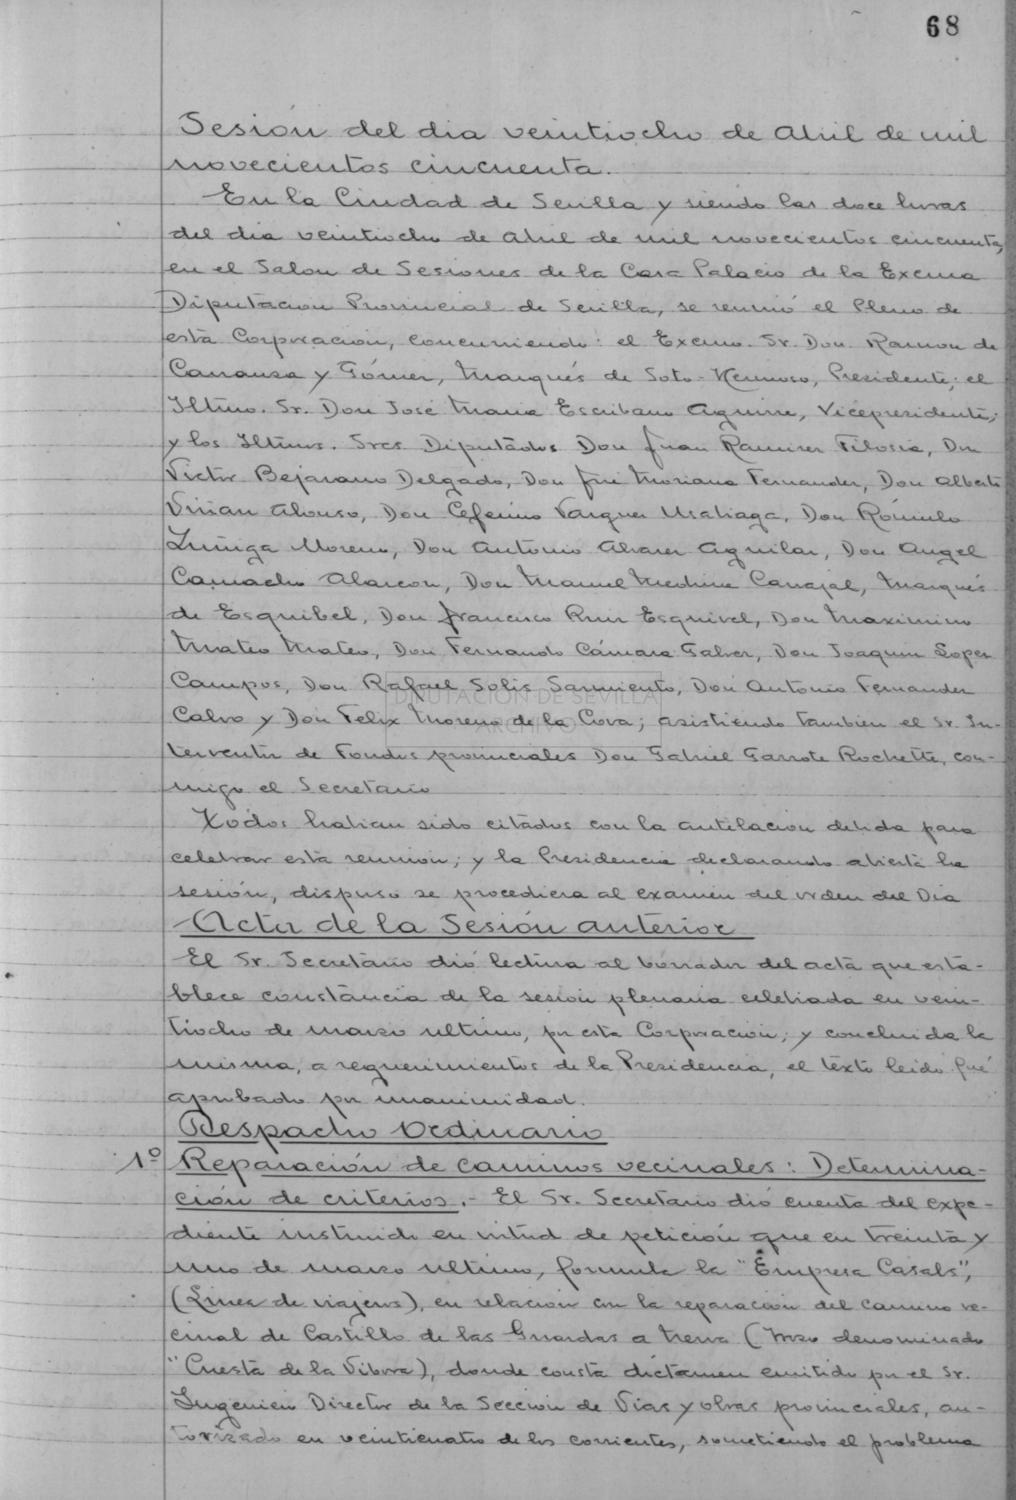 68
Sesión del dia veintiocho de Abril de mil
novecientos cincuenta.
En la Ciudad de Sevilla y siendo las doce horas
del dia veintiocho de Abril de mil novecientos cincuenta,
en el Salon de Sesiones de la Casa Palacio de la Excma
Diputacion Provincial de Sevilla, se reunió el Pleno de
esta Corporacion, concurriendo: el Excmo. Sr. Don Ramon de
Carranza y Gómez, Marqués de Soto-Hermoso, Presidente; el
Iltmo. Sr. Don José Maria Escribano Aguirre, Vicepresidente;
y los Iltmos. Sres. Diputados Don Juan Ramirez Filosia, Don
Victor Bejarano Delgado, Don José Moriana Fernandez, Don Alberto
Virian Alonso, Don Ceferino Vazquez Usatiaga, Don Rómulo
Zuñiga Moreno, Don Antonio Alvarez Aguilar, Don Angel
Camacho Alarcon, Don Manuel Medina Carvajal, Marqués
de Esquibel, Don Francisco Ruiz Esquivel, Don Maximino
Mateo Mateo, Don Fernando Cámara Galvez, Don Joaquin Lopez
Campos, Don Rafael Solis Sarmiento, Don Antonio Fernandez
Calvo y Don Felix Moreno de la Cova; asistiendo tambien el Sr. In-
terventor de Fondos provinciales Don Gabriel Garrote Rochette, con-
migo el Secretario
Todos habian sido citados con la antelacion debida para
celebrar esta reunion; y la Presidencia declarando abierta la
sesión, dispuso se procediera al examen del orden del Dia
Acta de la Sesión anterior
El Sr. Secretario dió lectura al borrador del acta que esta-
blece constancia de la sesion plenaria celebrada en vein-
tiocho de marzo ultimo, por esta Corporacion; y concluida la
misma, a requerimientos de la Presidencia, el texto leido fué
aprobado por unanimidad.
Despacho Ordinario
1º Reparación de caminos vecinales: Determina-
ción de criterios.- El Sr. Secretario dió cuenta del expe-
diente instruido en virtud de petición que en treinta y
uno de marzo ultimo, formula la "Empresa Casals",
(Linea de viajeros), en relacion con la reparacion del camino ve-
cinal de Castillo de las Guardas a Nerva (trozo denominado
"Cuesta de la Vibora), donde consta dictamen emitido por el Sr.
Ingeniero Director de la Seccion de Vias y obras provinciales, au-
torizado en veinticuatro de los corrientes, sometiendo el problema
DIPUTACION DE SEVILLA
ARCHIVO